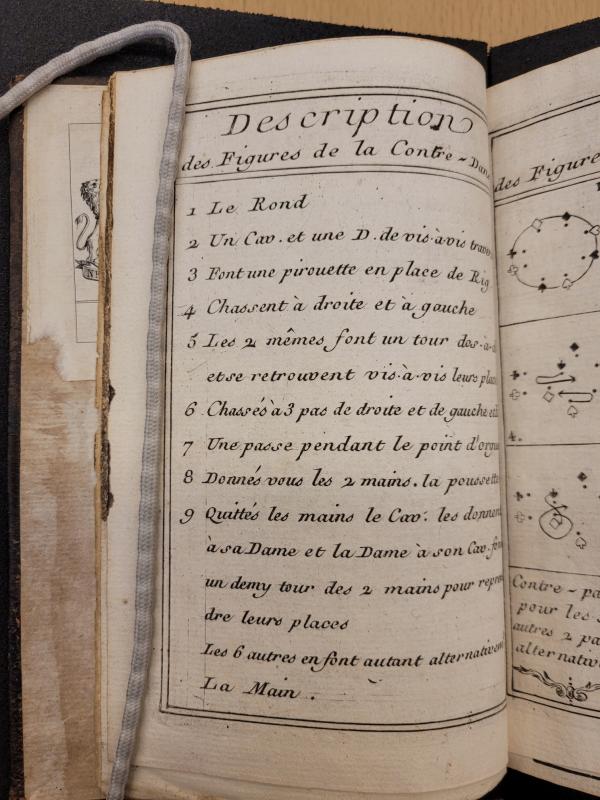 Description
des Figures de la Contre-Dan
1 Le Rond
2 Un Cav. et une D. de vis-à-vis trav
3 Font une pirouette en place de Rig
4 Chassent à droite et à gauche
5 Les 2 mêmes font un tour dos-à-d
et se retrouvent vis-à-vis leurs pla
6 Chassés à 3 pas de droite et de gauche
7 Une passe pendant le point d'orgue
8 Donnés vous les 2 mains. la poussette
9 Quittés les mains le Cav. les donnen
à sa Dame et la Dame à son Cav. fon
un demy tour des 2 mains pour repren
dre leurs places
Les 6 autres en font autant alternativem
La Main.
des Figure
4.
Contre-pa
pour les
autres 2 pa
alternativ